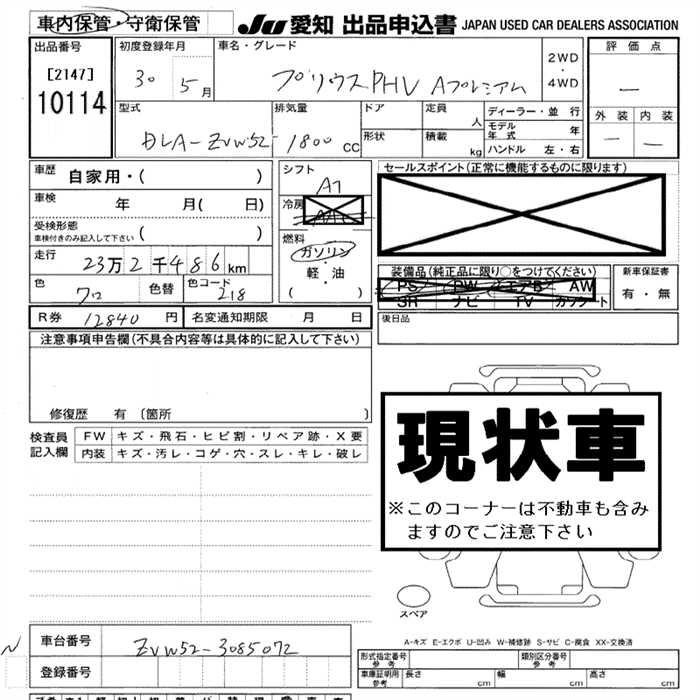 車内保管・守衛保管 JU 愛知 出品申込書 JAPAN USED CAR DEALERS ASSOCIATION
出品番号
[2147]
10114
初度登録年月
30 5月
車名・グレード
プリウスPHV Aプレミアム
2WD
・
4WD
評価点
—
外装 内装
— —
型式
DLA-ZVW52
排気量
1800 cc
ドア
形状
定員 人
積載 kg
ディーラー・並行
モデル年式 年
ハンドル 左・右
車歴 自家用・( )
車検 年 月( 日)
受検形態
車検付きのみ記入して下さい ( )
走行 23万2千486km
色 7ロ 色替 色コード 218
シフト
A7
冷房
A/C
燃料
ガソリン
・
軽・油
( )
セールスポイント(正常に機能するものに限ります)
装備品(純正品に限り○をつけてください)
PS PW エアB AW
SR ナビ TV カワシート
新車保証書
有・無
R券 12840円 名変通知期限 月 日
後日品
注意事項申告欄(不具合内容等は具体的に記入して下さい)
修復歴 有〔箇所 〕
検査員記入欄
FW キズ・飛石・ヒビ割・リペア跡・X要
内装 キズ・汚レ・コゲ・穴・スレ・キレ・破レ
現状車
※このコーナーは不動車も含み
ますのでご注意下さい
スペア
A-キズ E-エクボ U-凹み W-補修跡 S-サビ C-腐食 XX-交換済
N
車台番号 ZVW52-3085072
登録番号
形式指定番号 参考
類別区分番号 参考
車庫証明用 参考 長さ cm 幅 cm 高さ cm